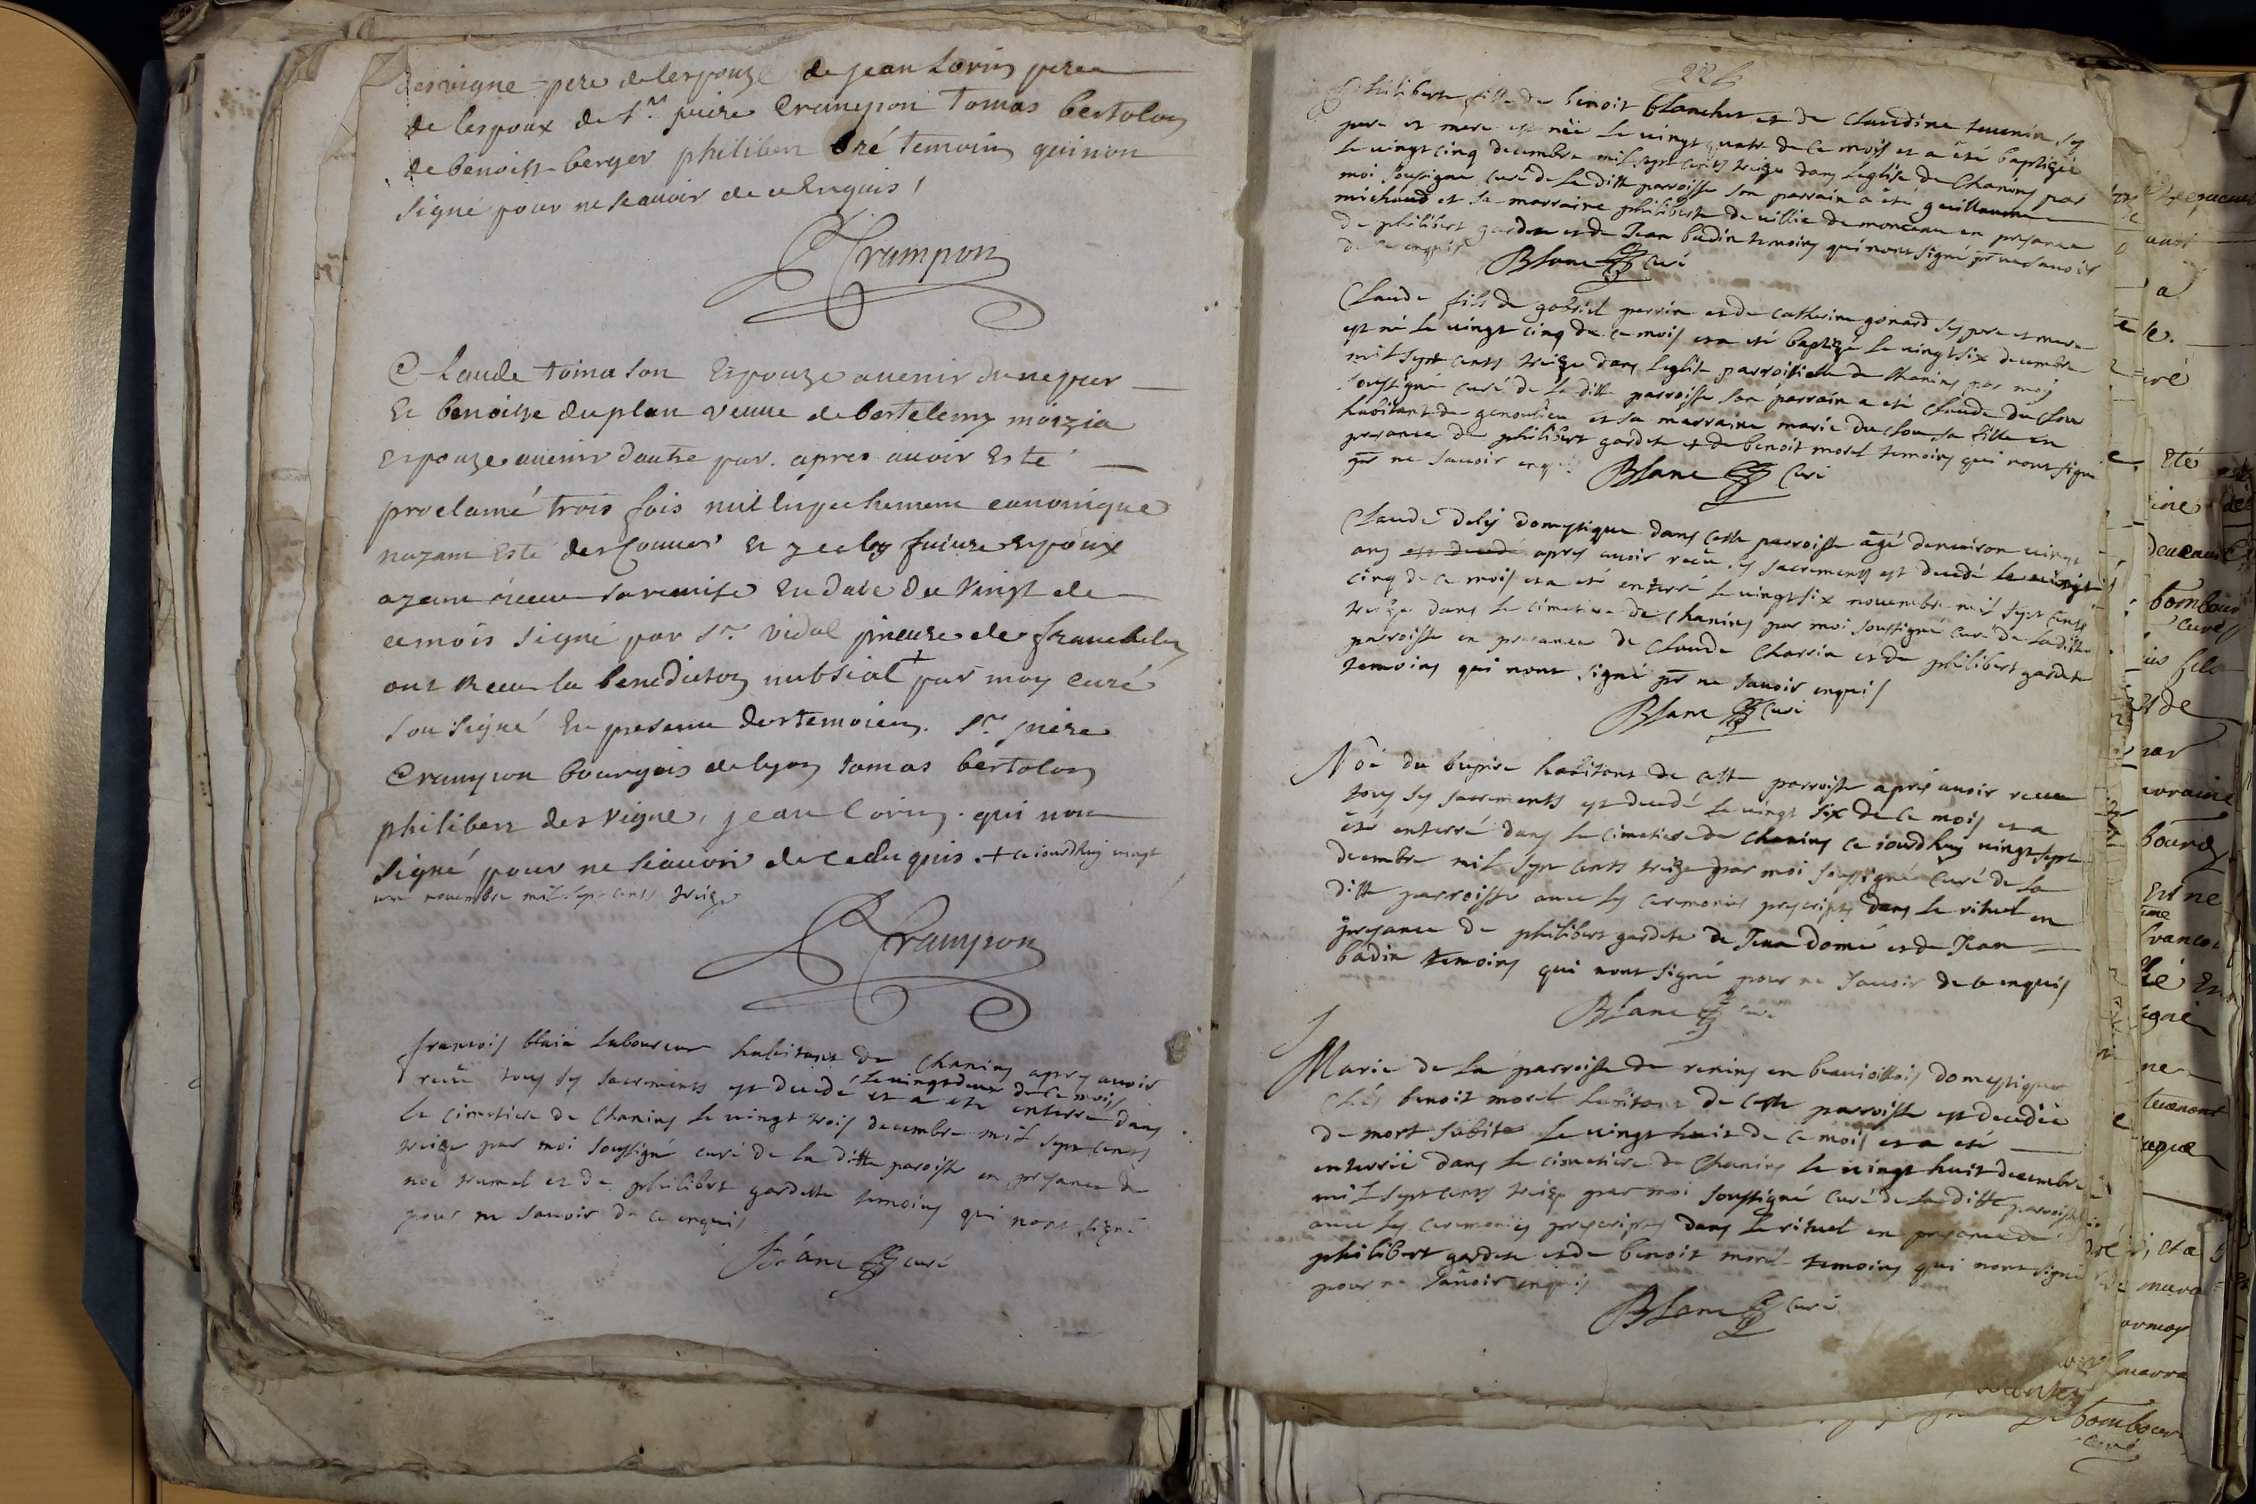 desvigne pere de lespouze de jean Lorin pere
de lespoux de Sr. piere Crampon tomas bertolon
de benoist berger philiber bré temoins qui non
signé pour ne scavoir de ce enquis
Crampon
Claude tomason Espouze avenir dune par
Et benoitte duplan veuve de bartelemy moizia
Espouze avenir dautre par. apres avoir Esté
proclamé trois fois nul enpechemens canonique
nayant Esté descouver Et yceluy future Espoux
ayant receu sa remise En date du vingt de
ce mois signé par Sr. vidal prieure de francheleins
ont receu la benediction nubsial + par moy curé
sousigné En presence des temoiens. Sr. piere
Crampon bourgois de lyon tomas bertolon
philiber des vigne, jean Lorin. qui non
signé pour ne scavoir de ce enquis. + ce iourdhuy vingt
un novembre mil sept cents treize
Crampon
francois habitant de Chanins apres avoir
receu tous ses sacrements est decedé le vingt deux de ce mois
et a ete enterré dans
le cimetiere de Chanins le vingt trois decembre mil sept cents
treize par moi soussigné curé de la ditte paroisse en presence de
noe trumel et de philibert gardette temoins qui nont signé
pour ne savoir de ce enquis
Blanc curé
Philiberte fille de benoit blanchet et de claudine tevenin ses
pere et mere est née le vingt quatre de ce mois et a été baptizée
le vingt cinq decembre mil sept cents treize dans léglise de Chanins par
moi sousigné curé de la ditte parroisse son parrain a été guillaume
michaud et sa marraine philiberte de villie de monceau en presance
de philibert gardete et de Jean badin temoins qui nont signé pr ne savoir
de ce enquis
Blanc curé
Claude fils de gabriel perrin et de catherine gonard ses pere et mere
est né le vingt cinq de ce mois et a été baptizé le vingt six decembre
mil sept cents treize dans leglise parroisielle de Chanins par moy
soussigné curé de la ditte parroisse son parrain a eté claude du clou
habitant de genouleu et sa marraine marie du clou sa fille en
presance de philibert gardete et de benoit morel temoins qui nont signé
pr ne savoir enquis
Blanc curé
Claude domestique dans cette parroisse agé denviron vingt
ans est decedé apres avoir receu ses sacrements est decedé le vingt
cinq de ce mois et a eté enterré le vingt six novembre mil sept cents
treize dans le cimetiere de Chanins par moi soussigné curé de la ditte
parroisse en presance de Claude Charrin et de philibert gardete
temoins qui nont signé pr ne savoir enquis
Blanc curé
Noé du habitant de cette parroisse après avoir receu
tous ses sacrements est decedé le vingt six de ce mois et a
été enterré dans le cimetiere de Chanins ce iourdhuy vingt sept
decembre mil sept cents treize par moi soussigné curé de la
ditte parroisse avec les ceremonies prescriptes dans le rituel en
presance de philibert gardete de Jean domé et de Jean
badin temoins qui nont signé pour ne savoir de ce enquis
Blanc curé
Marie de la parroisse de renins en beauiollois domestique
chés benoit morel habitant de cette parroisse est decedée
de mort subite le vingt huit de ce mois et a eté
enterrée dans le cimetiere de Chanins le vingt huit decembre
mil sept cents treize par moi soussigné curé de la ditte parroisse
avec les ceremonies prescriptes dans le rituel en presance de
philibert gardete et de benoit morel temoins qui nont signé
pour ne savoir enquis
Blanc curé